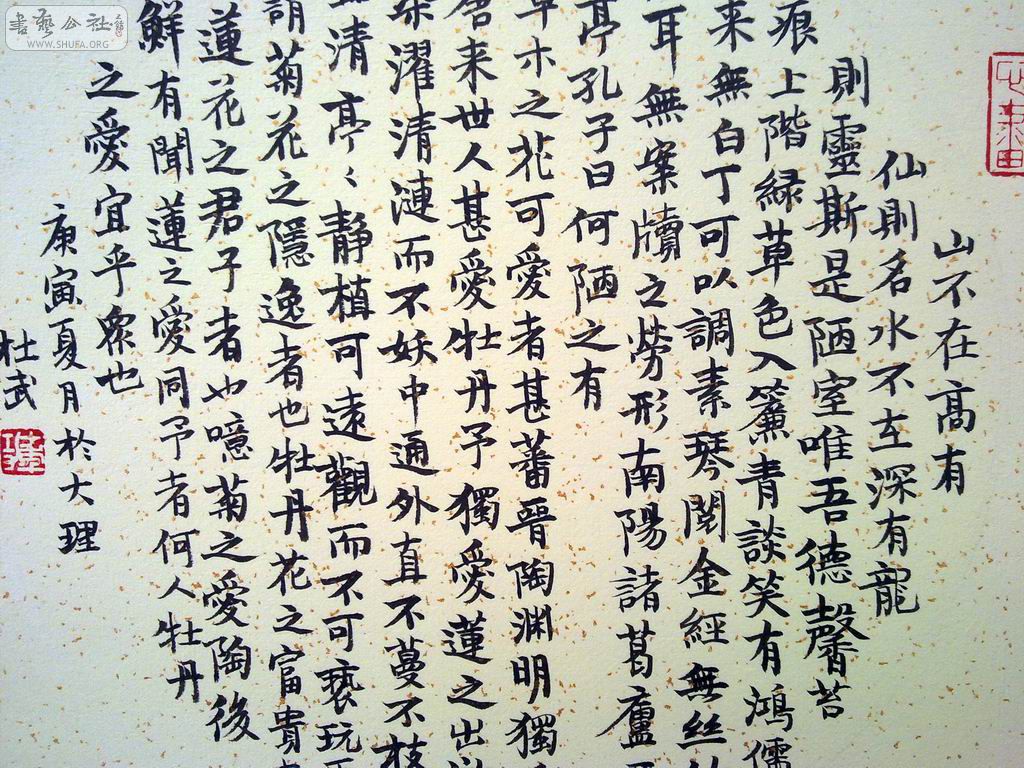 山不在高有
仙則名水不在深有龍
則靈斯是陋室唯吾德馨苔
痕上階緑草色入簾青談笑有鴻儒
来無白丁可以調素琴閱金經無丝
耳無案牘之勞形南陽諸葛廬
亭孔子曰何陋之有
草木之花可愛者甚蕃晉陶渊明獨
唐来世人甚愛牡丹予獨愛蓮之出
染濯清漣而不妖中通外直不蔓不枝
清亭々静植可遠觀而不可亵玩
謂菊花之隱逸者也牡丹花之富貴
蓮花之君子者也噫菊之愛陶後
鮮有聞蓮之愛同予者何人牡丹
之愛宜乎衆也
庚寅夏月於大理
杜武
書藝公社
WWW.SHUFA.ORG